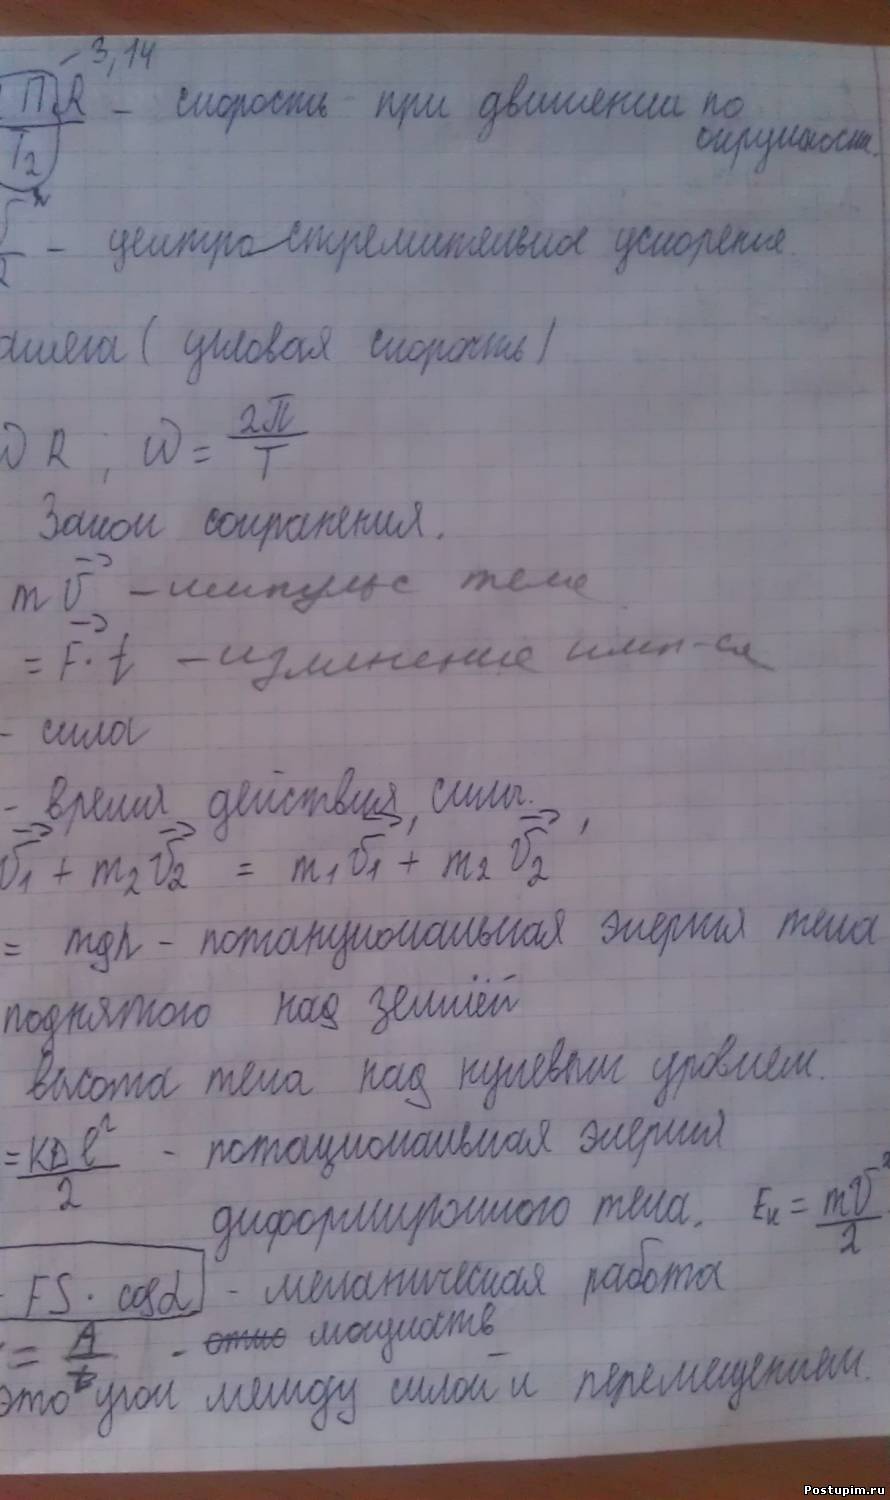 3,14
2ПR/T₂ - скорость при движении по
окружности.
- центростремительное ускорение
(угловая скорость)
R ; ω = 2π/T
Закон сохранения.
m v⃗ - импульс тела
= F⃗ · t - изменение имп-са
- сила
- время действия силы.
v⃗₁ + m₂v⃗₂ = m₁v⃗₁ + m₂v⃗₂
= mgh - потанциональная энергия тела
поднятого над землёй
высота тела над нулевым уровнем.
= KΔl²/2 - потациональная энергия
диформиронного тела. Eк = mv²/2
FS · cosα - механическая работа
= A/t - мощность
это угол между силой и перемещением.
Postupim.ru